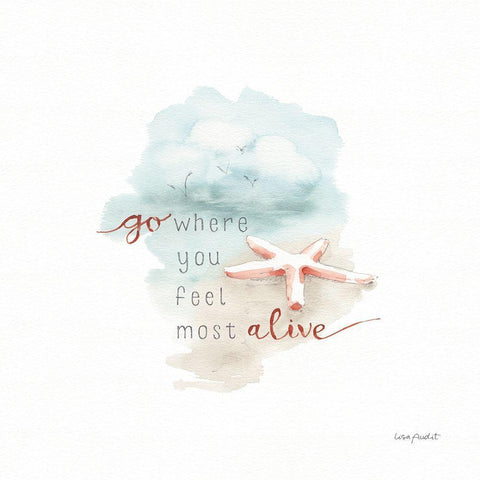 go where
you
feel
most alive
Lisa Audit